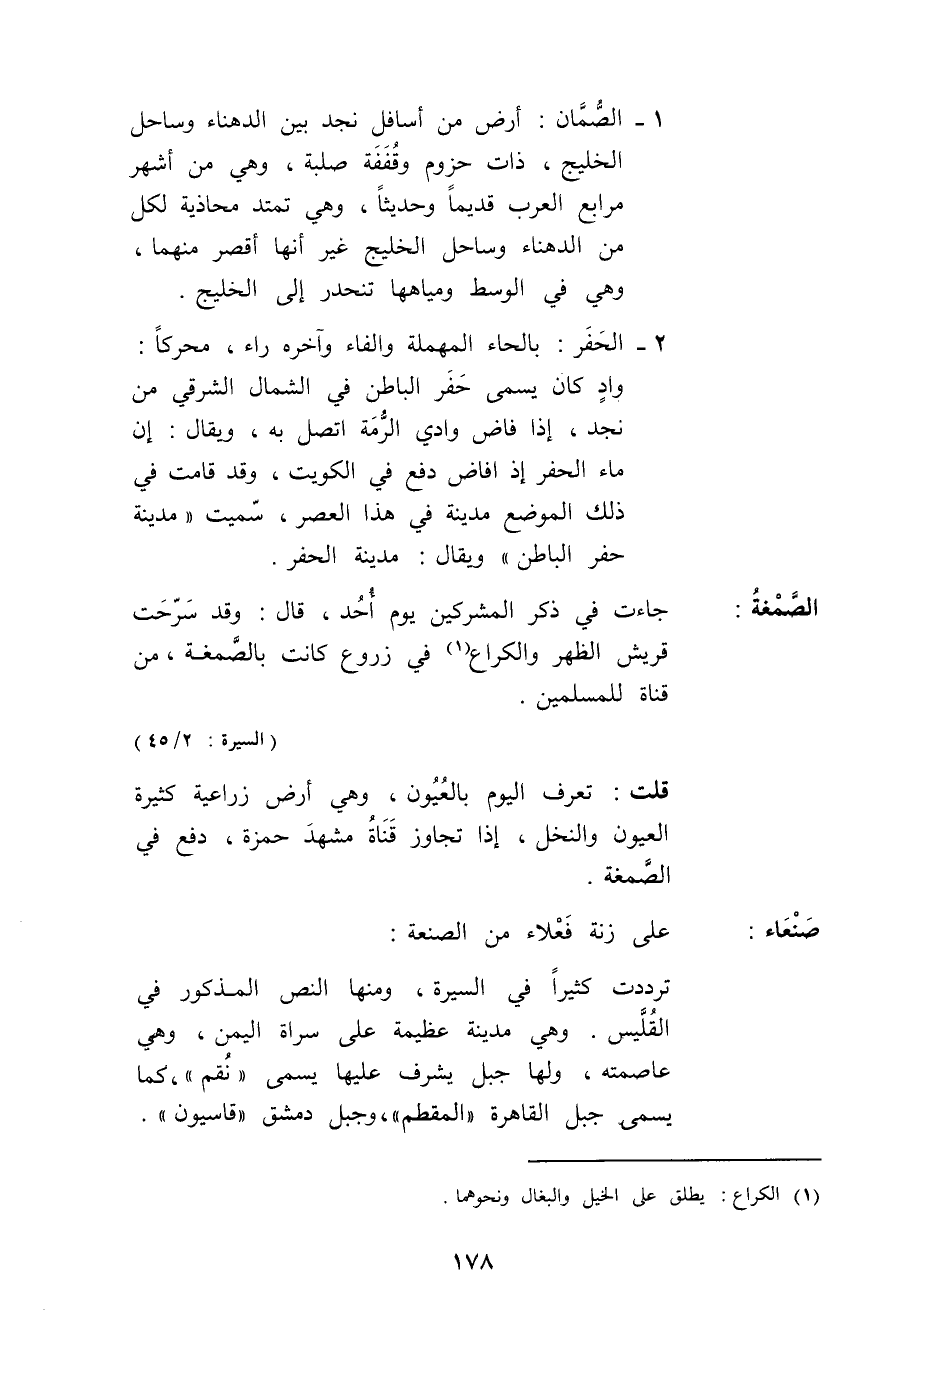 ١ ـ الصُّمَّان : أرض من أسافل نجد بين الدهناء وساحل
الخليج ، ذات حزوم وقُفَفَة صلبة ، وهي من أشهر
مرابع العرب قديماً وحديثاً ، وهي تمتد محاذية لكل
من الدهناء وساحل الخليج غير أنها أقصر منهما ،
وهي في الوسط ومياهها تنحدر إلى الخليج .
٢ ـ الحَفَر : بالحاء المهملة والفاء وآخره راء ، محركاً :
وادٍ كان يسمى حَفَر الباطن في الشمال الشرقي من
نجد ، إذا فاض وادي الرُّمَة اتصل به ، ويقال : إن
ماء الحفر إذ افاض دفع في الكويت ، وقد قامت في
ذلك الموضع مدينة في هذا العصر ، سّميت « مدينة
حفر الباطن » ويقال : مدينة الحفر .
الصَّمْغةُ : جاءت في ذكر المشركين يوم أُحُد ، قال : وقد سَرّحَت
قريش الظهر والكراع(١) في زروع كانت بالصَّمغة ، من
قناة للمسلمين .
( السيرة : ٤٥/٢ )
قلت : تعرف اليوم بالعُيُون ، وهي أرض زراعية كثيرة
العيون والنخل ، إذا تجاوز قَنَاةُ مشهدَ حمزة ، دفع في
الصَّمغة .
صَنْعَاء : على زنة فَعْلاء من الصنعة :
ترددت كثيراً في السيرة ، ومنها النص المذكور في
القُلَّيس . وهي مدينة عظيمة على سراة اليمن ، وهي
عاصمته ، ولها جبل يشرف عليها يسمى « نُقم » ،كما
يسمى جبل القاهرة «المقطم»،وجبل دمشق «قاسيون » .
(١) الكراع : يطلق على الخيل والبغال ونحوهما .
١٧٨